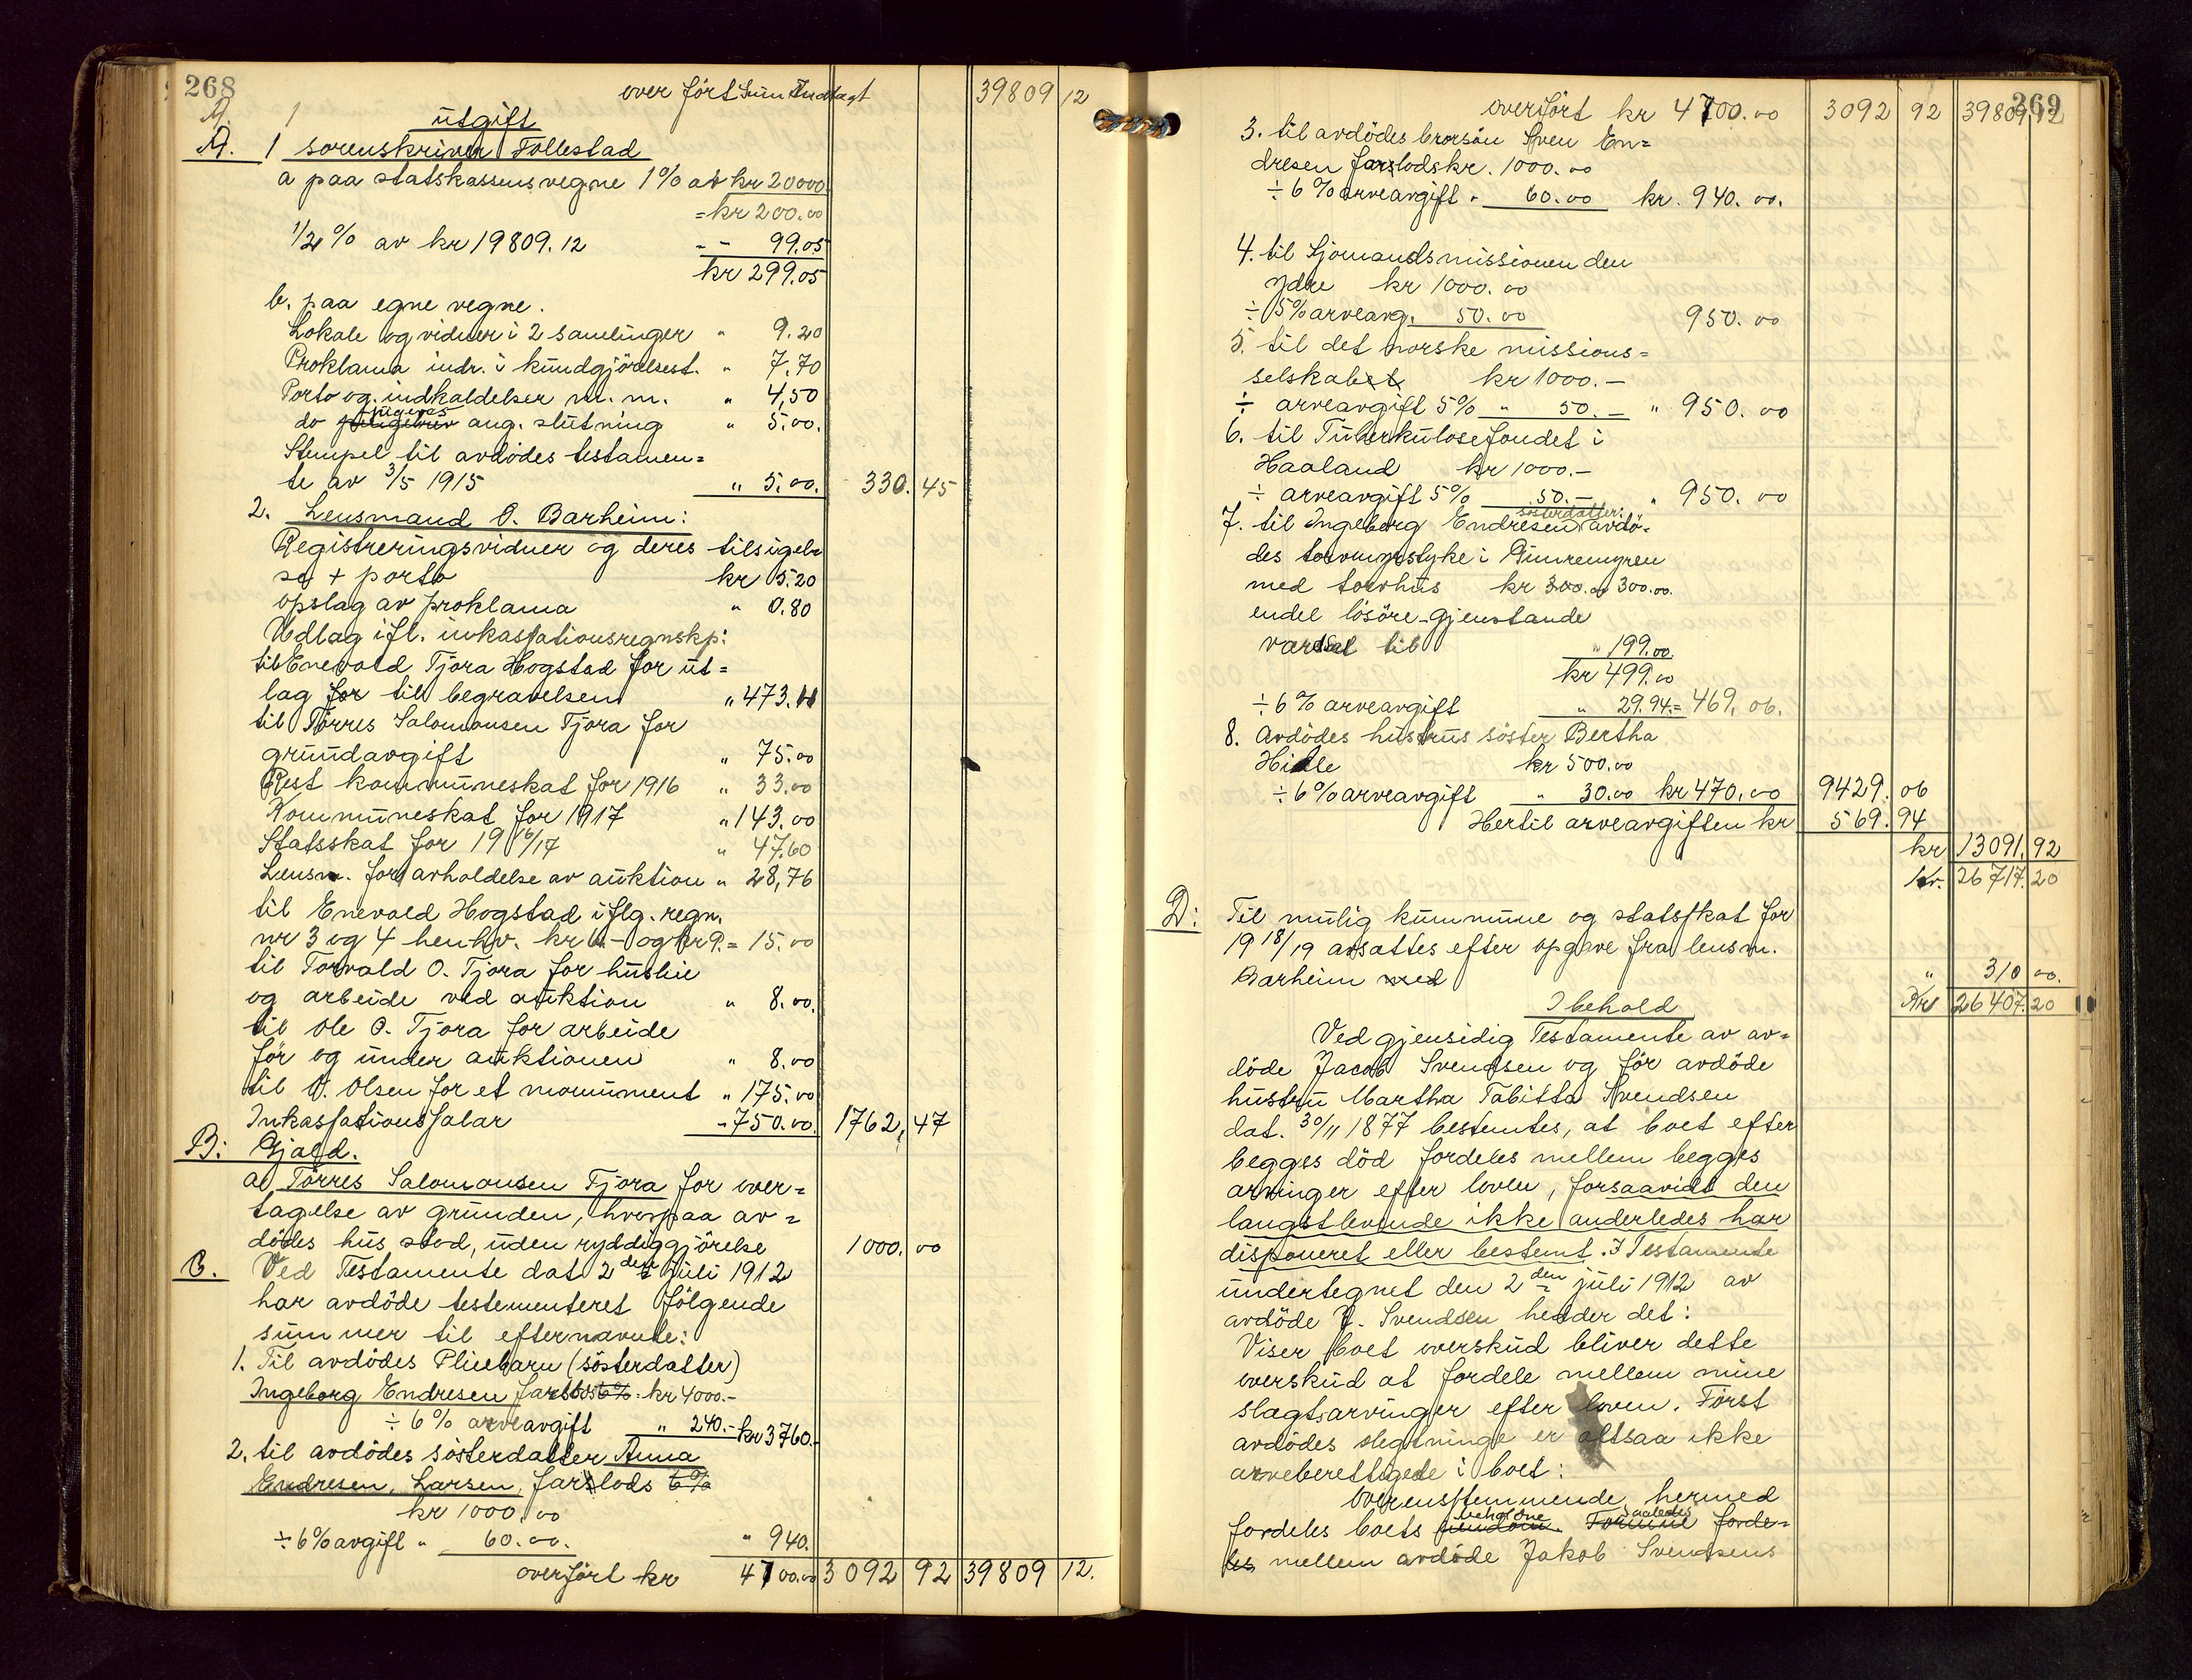 268
over ført Sum Indtægt 39809 12
A. 1 utgift
A. 1 sorenskriver Follestad
a paa statskassens vegne 1% av kr 20000
= kr 200.00
1/2% av kr 19809.12 - - 99.05
kr 299.05
b. paa egne vegne.
Lokale og vidner i 2 samlinger " 9.20
Proklama indr. i kundgjörelsest. " 7.70
Porto og indkaldelser m. m. " 4,50
do ang. slutning " 5.00.
Stempel til avdödes testamen=
te av 3/5 1915 " 5.00. 330.45
2. Lensmand O. Barheim:
Registreringsvidner og deres tilsigel
se + porto kr 5.20
opslag av proklama " 0.80
Udlag ifl. inkassationsregnskp:
til Enevald Tjora Hogstad for ut=
lag for til begravelsen " 473.11
til Törres Salomonsen Tjora for
grundavgift " 75.00
Rest kommuneskat for 1916 " 33.00
Kommuneskat for 1917 " 143.00
Statsskat for 19 16/17 " 47.60
Lensm. for avholdelse av auktion " 28,76
til Enevald Hogstad iflg. regn.
nr 3 og 4 henhv. kr 6.- og kr 9. = 15.00
til Torvald O. Tjora for huslie
og arbeide ved auktion " 8.00.
til Ole O. Tjora for arbeide
för og under auktionen " 8.00
til O. Olsen for et monument " 175.00
Inkassationssalar - 750.00. 1762,47
B: Gjæld.
a) Törres Salomonsen Tjora for over=
tagelse av grunden, hvorpaa av=
dödes hus stod, uden ryddiggjörelse 1000.00
C. Ved Testamente dat 2den juli 1912
har avdöde testementeret fölgende
summer til efternævnte:
1. Til avdödes Pliebarn (sösterdatter)
Ingeborg Endresen farslods 6% kr 4000.-
÷ 6% arveavgift " 240.- kr 3760.-
2. til avdödes sösterdatter Anna
Endresen, Larsen, farslods 6%
kr 1000.00
÷ 6% avgift " 60.00. " 940.
overfört kr 4700.00 3092 92 39809 12.
269
overfört kr 4700.00 3092 92 39809,12
3. til avdödes brorsön Sven En=
dresen farslods kr. 1000.00
÷ 6% arveavgift " 60.00 kr. 940.00.
4. til Sjömandsmissionen den
ydre kr 1000.00
÷ 5% arveavg. 50.00 950.00
5. til det norske missions=
selskabet kr 1000.-
÷ arveavgift 5% " 50.- " 950.00
6. til Tuberkulosefondet i
Haaland kr 1000.-
÷ arveavgift 5% 50.- " 950.00
sösterdatter:
7. til Ingeborg Endresen avdö-
des torvmyrstyke i
med torvhus kr 300.00 300.00.
endel lösöre-gjenstande
værdsat til " 199.00.
kr 499.00
÷ 6% arveavgift " 29.94.= 469,06.
8. Avdödes hustrus söster Bertha
Hidle kr 500.00
÷ 6% arveavgift " 30.00 kr 470.00 9429.06
Hertil arveavgiften kr 569.94
kr 13091.92
kr. 26717.20
D: Til mulig kummune og statsskat for
19 18/19 avsattes efter opgave fra lensm.
Barheim med " 310 00.
I behold Kr 26407.20
Ved gjensidig Testamente av av=
döde Jacob Svendsen og för avdöde
hustru Martha Tabitta Svendsen
dat. 30/11 1877 bestemtes, at boet efter
begges död fordeles mellem begges
arvinger efter loven, forsaavidt den
længstlevende ikke anderledes har
disponeret eller bestemt. I Testamente
undertegnet den 2den juli 1912 av
avdöde J. Svendsen hedder det:
Viser boet overskud bliver dette
overskud at fordele mellem mine
slægtsarvinger efter loven. Först
avdödes slegtninge er altsaa ikke
arveberettigede i boet:
Overensstemmende hermed
beholdne saaledes
fordeles boets Formue forde=
les mellem avdöde Jakob Svendsens